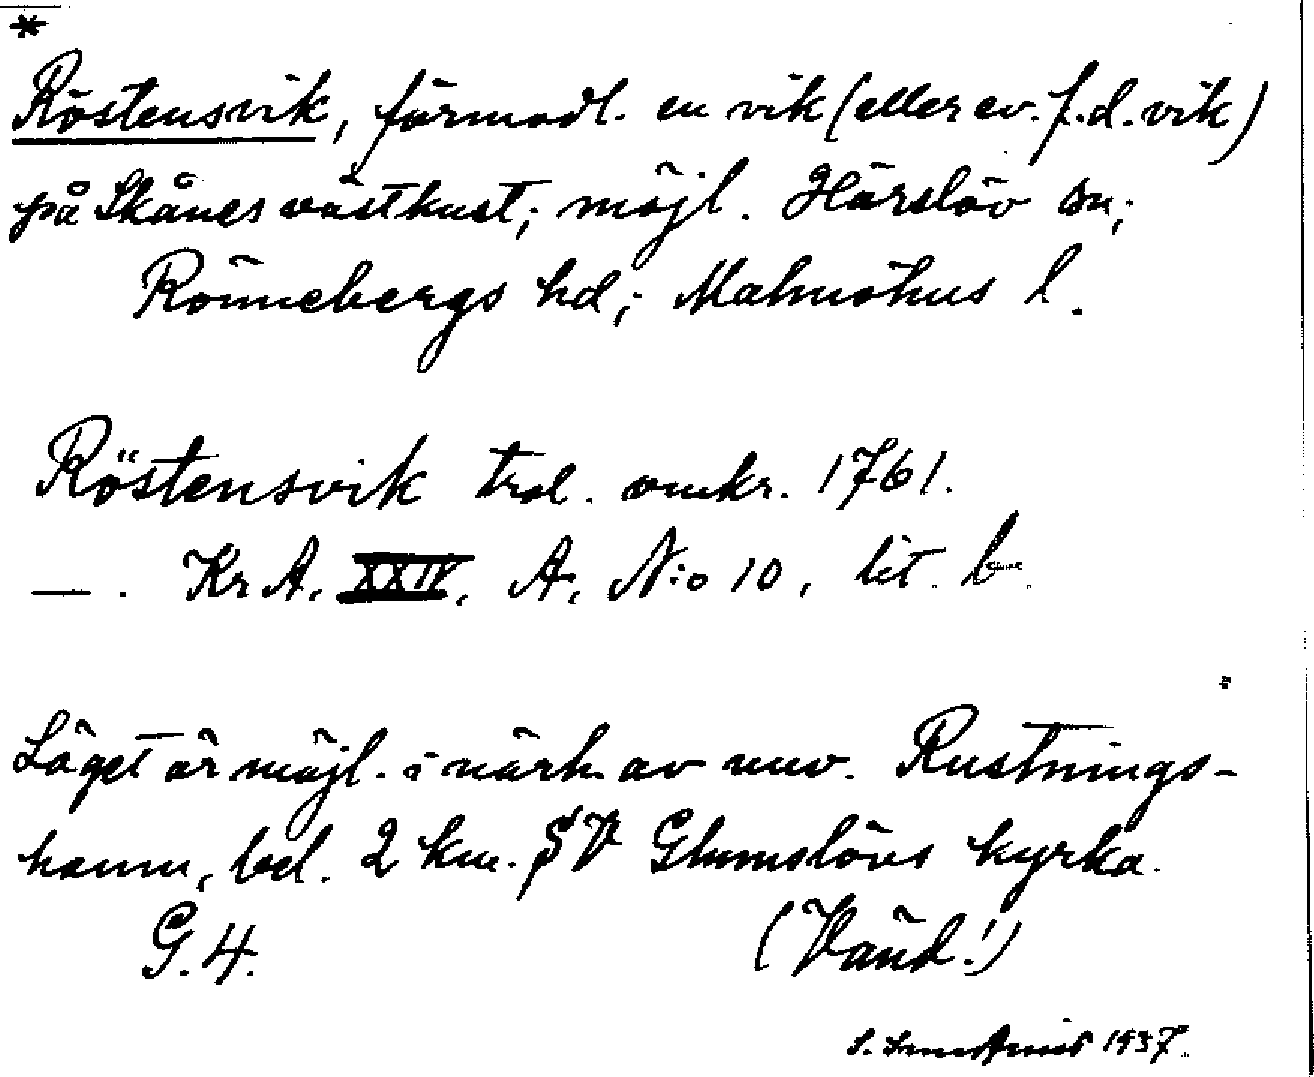 *
Röstensvik, förmodl. en vik (eller ev. f.d. vik)
på Skånes västkust; möjl. Härslöv sn;
Rönnebergs hd; Malmöhus l.
Röstensvik trol. omkr. 1761.
— . Kr A. XXIV. A, N:o 10, lit. b.
Läget är möjl. i närh. av nuv. Rustnings-
hamn, bel. 2 km. SV Glumslövs kyrka.
G. 4.
(Vänd!)
S. 1937.